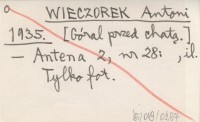 WIECZOREK Antoni
1935. [Góral przed chatą.]
— Antena 2, nr 28: , il.
Tylko fot.